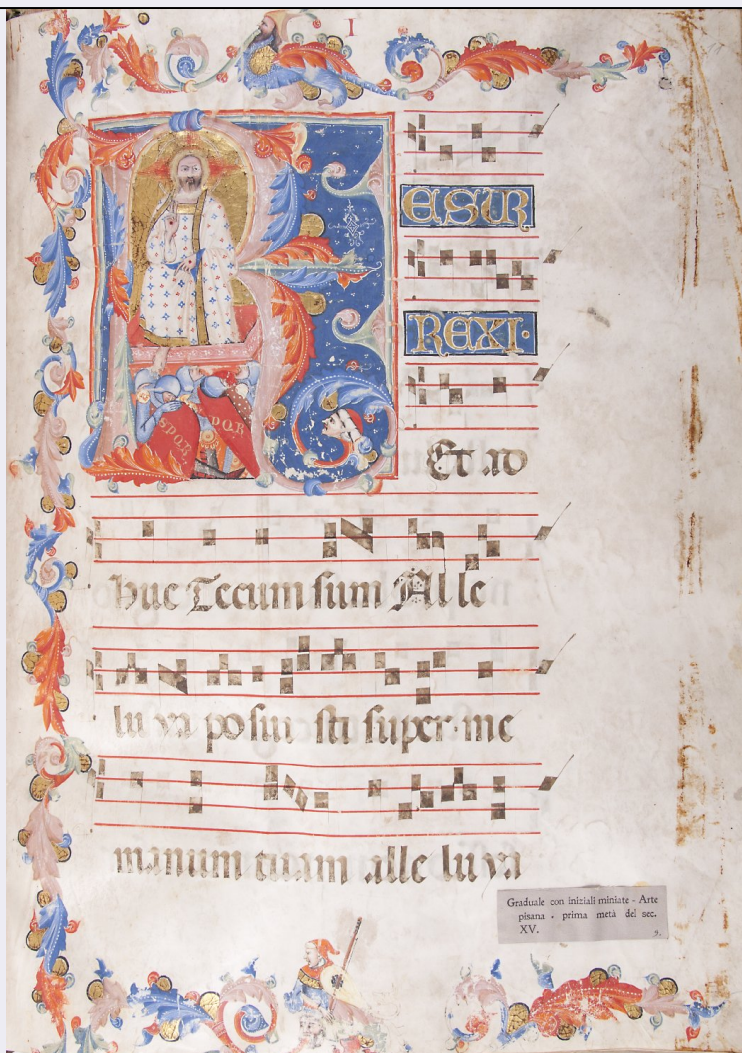 I
R
ESUR
REXI·
Et ad
SPQR
PQR
huc Tecum sum Alle
lu ya posui sti super me
manum tuam alle lu ya
Graduale con iniziali miniate - Arte
pisana - prima metà del sec.
XV.
9.